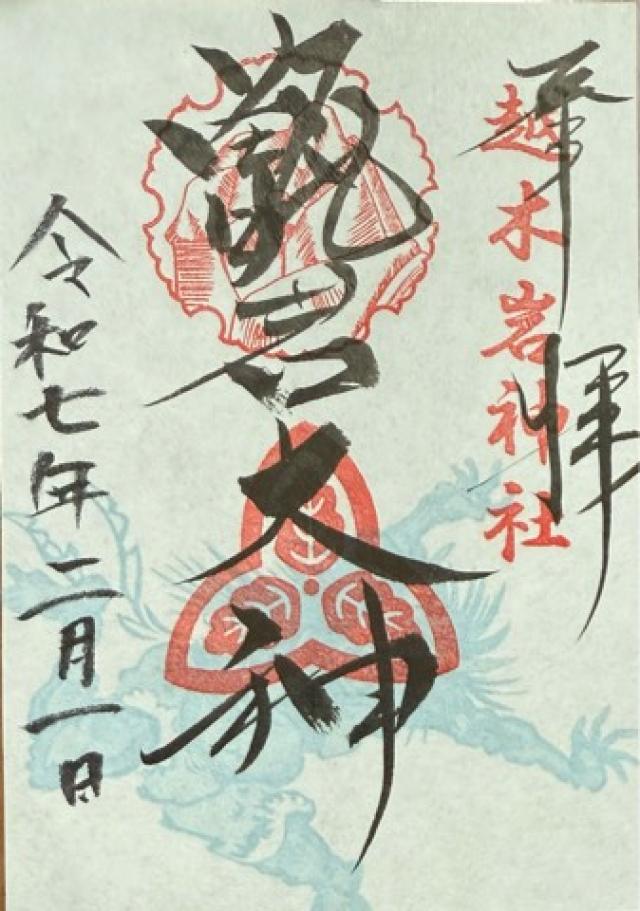 奉拝
越木岩神社
甑岩大神
令和七年二月一日